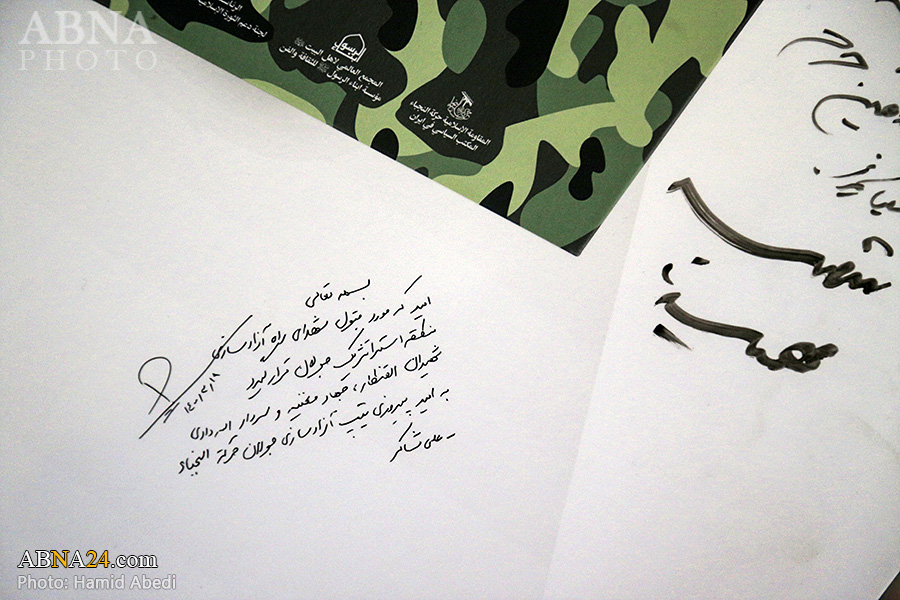 ABNA
PHOTO
لجنة دعم الثورة الاسلامية
الرسول
المجمع العالمي لاهل البيت
مؤسسة ابناء الرسول للثقافة والفن
المقاومة الاسلامية حركة النجباء
المكتب السياسي في ايران
بسمه تعالی
امید که مورد قبول شهدای راه آزادسازی
منطقه استراتژیک جولان قرار گیرد
شهیدان القنطار، جهاد مغنیه و سردار اله دادی
به امید پیروزی تیپ آزادسازی جولان حرکة النجباء
علی شاکر
۱۴۰۱/۳/۱۸
ABNA24.com
Photo: Hamid Abedi